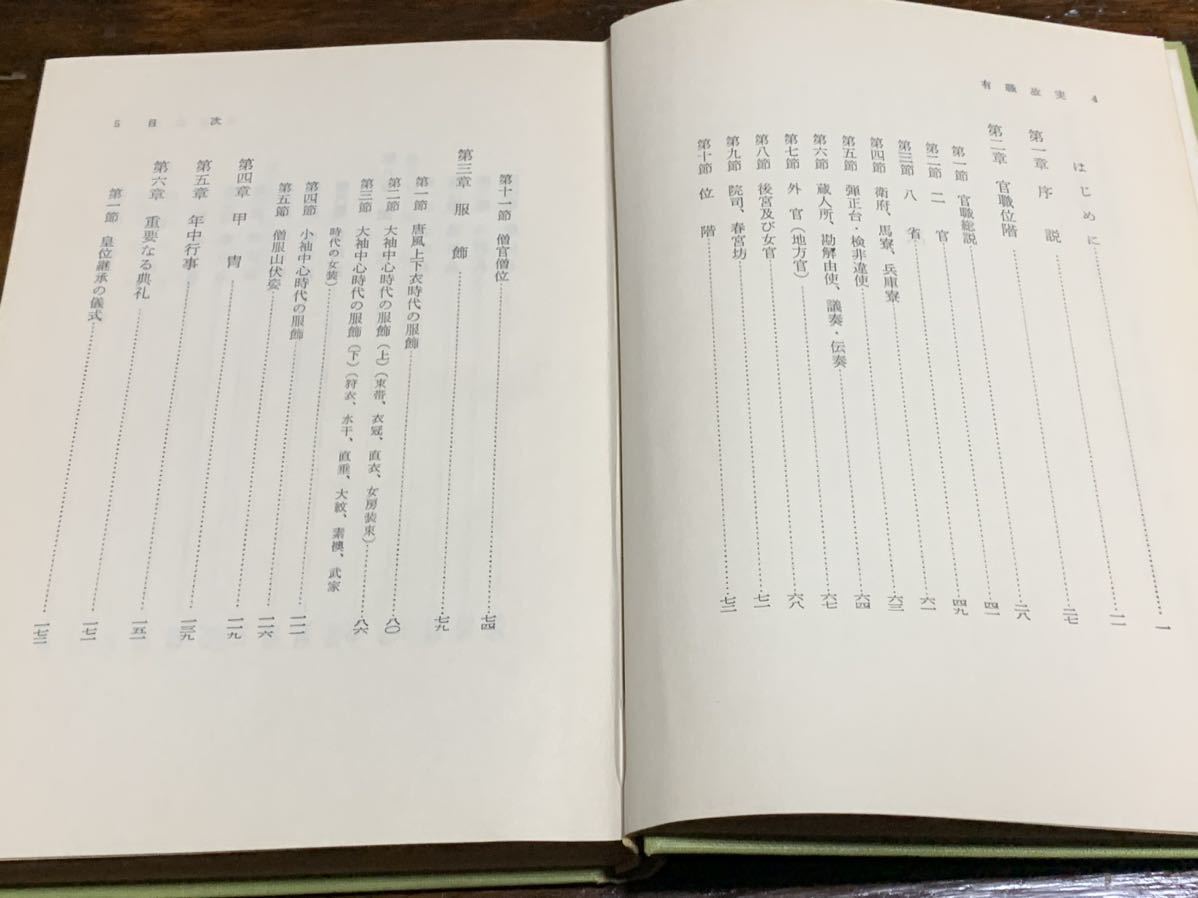 有職故実 4
はじめに……一
第一章 序説……一一
第二章 官職位階……二七
第一節 官職総説……二八
第二節 二官……四一
第三節 八省……四九
第四節 衛府、馬寮、兵庫寮……六一
第五節 弾正台・検非違使……六三
第六節 蔵人所、勘解由使、議奏・伝奏……六四
第七節 外官(地方官)……六七
第八節 後宮及び女官……六八
第九節 院司、春宮坊……七一
第十節 位階……七二
5 目次
第十一節 僧官僧位……七四
第三章 服飾……七九
第一節 唐風上下衣時代の服飾……八〇
第二節 大袖中心時代の服飾(上)(束帯、衣冠、直衣、女房装束)……八六
第三節 大袖中心時代の服飾(下)(狩衣、水干、直垂、大紋、素襖、武家
時代の女装)……一一一
第四節 小袖中心時代の服飾……一一六
第五節 僧服山伏姿……一一九
第四章 甲冑……一三九
第五章 年中行事……一五一
第六章 重要なる典礼……一七一
第一節 皇位継承の儀式……一七二